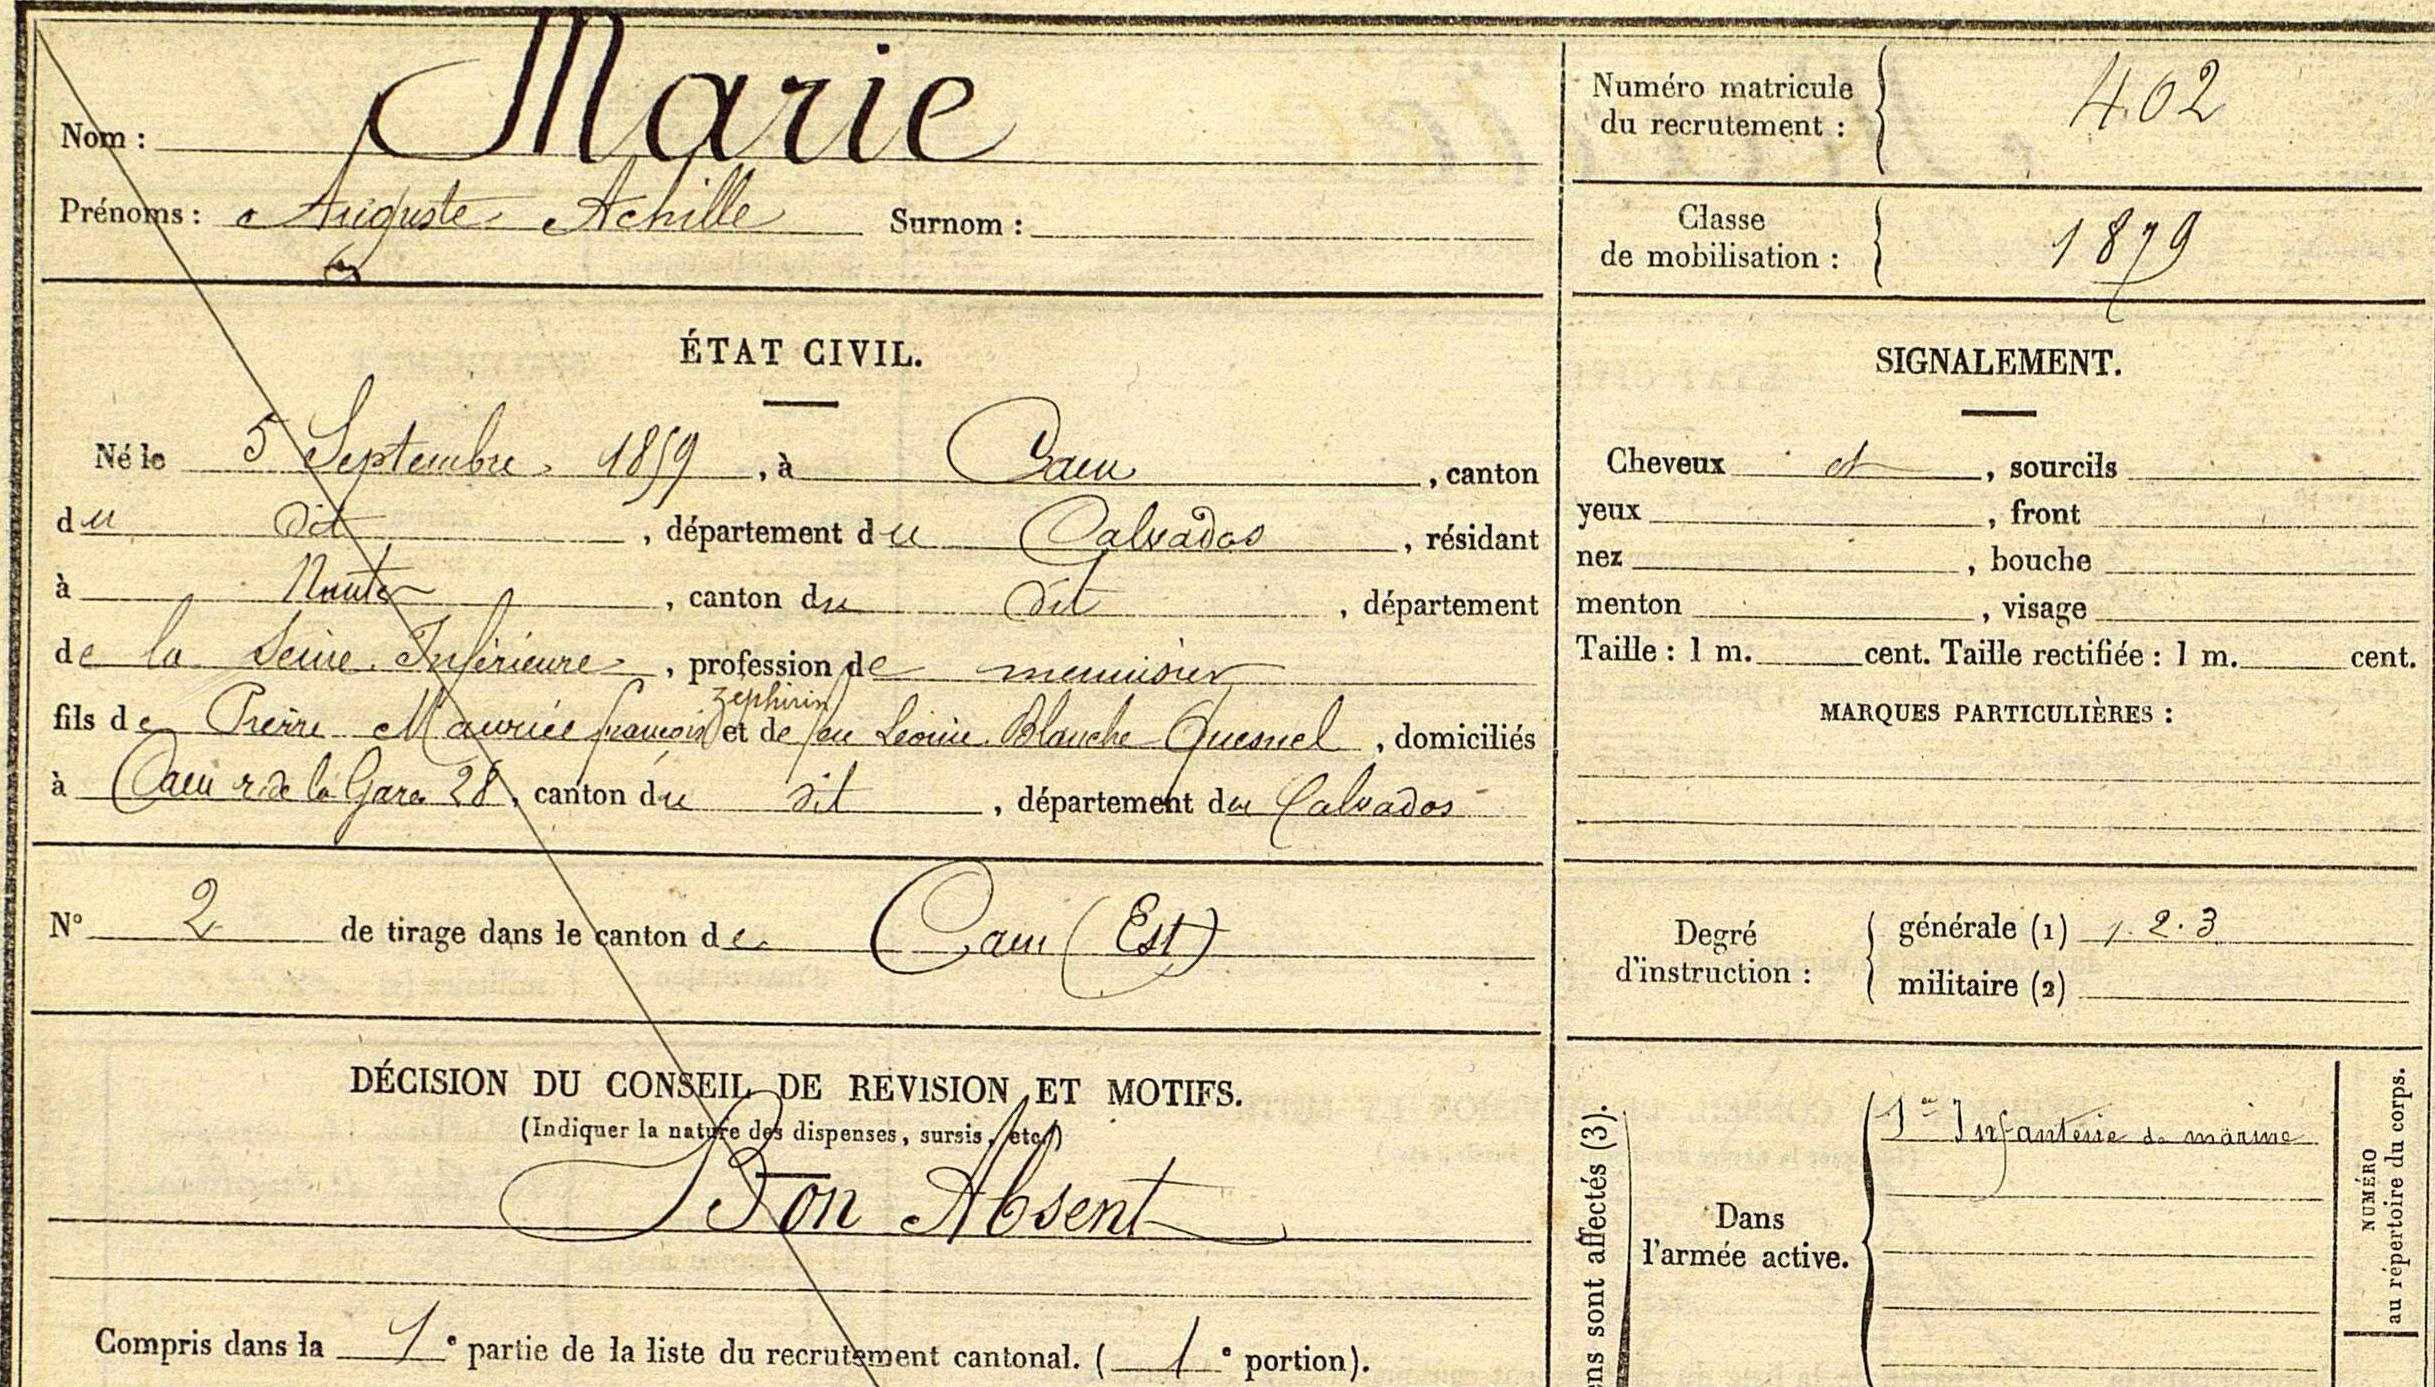 Nom : Marie
Prénoms : Auguste Achille Surnom :
ÉTAT CIVIL.
Né le 5 Septembre 1859, à Caen, canton
du dit, département du Calvados, résidant
à Nantes, canton du dit, département
de la Seine Inférieure, profession de menuisier
zéphirin
fils de Pierre Maurice françois et de feu Léonie Blanche Quesnel, domiciliés
à Caen r. de la Gare 28, canton du dit, département du Calvados
N° 2 de tirage dans le canton de Caen (Est)
DÉCISION DU CONSEIL DE REVISION ET MOTIFS.
(Indiquer la nature des dispenses, sursis, etc.)
Bon Absent
Compris dans la 1e partie de la liste du recrutement cantonal. (1e portion).
Numéro matricule
du recrutement : 402
Classe
de mobilisation : 1879
SIGNALEMENT.
Cheveux , sourcils
yeux , front
nez , bouche
menton , visage
Taille : 1 m. cent. Taille rectifiée : 1 m. cent.
MARQUES PARTICULIÈRES :
Degré
d'instruction :
générale (1) 1. 2. 3
militaire (2)
ens sont affectés (3).
Dans
l'armée active.
1er Infanterie de marine
NUMÉRO
au répertoire du corps.